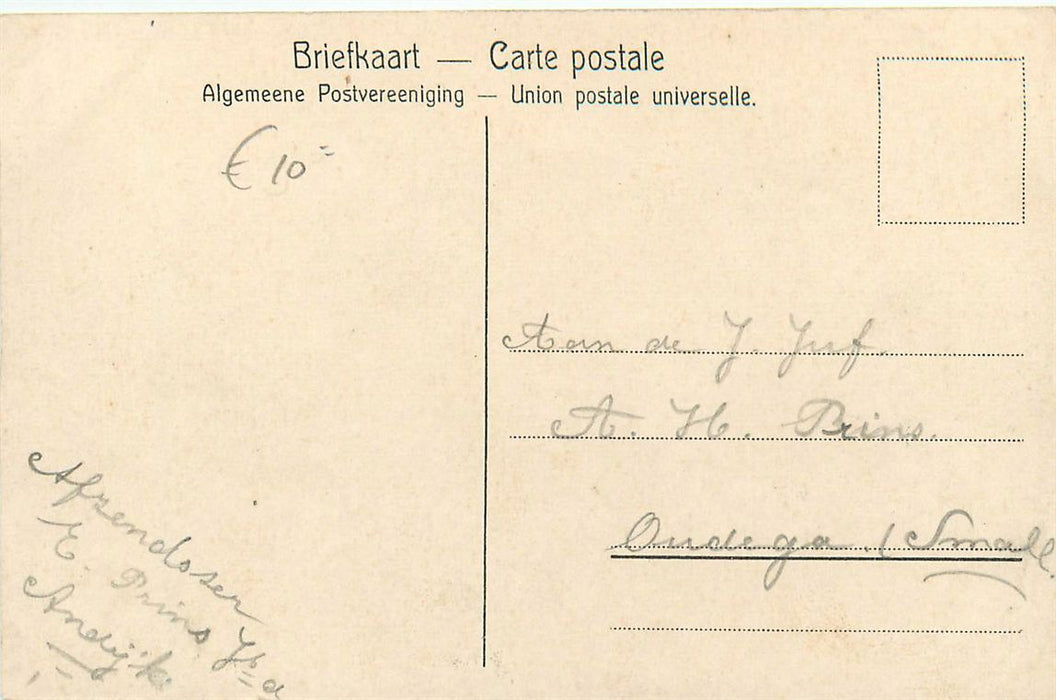 Briefkaart — Carte postale
Algemeene Postvereeniging — Union postale universelle.
€ 10=
Aan de J. Juf.
A. H. Prins.
Oudega. (Small.
Afzendster
E. Prins
Andijk